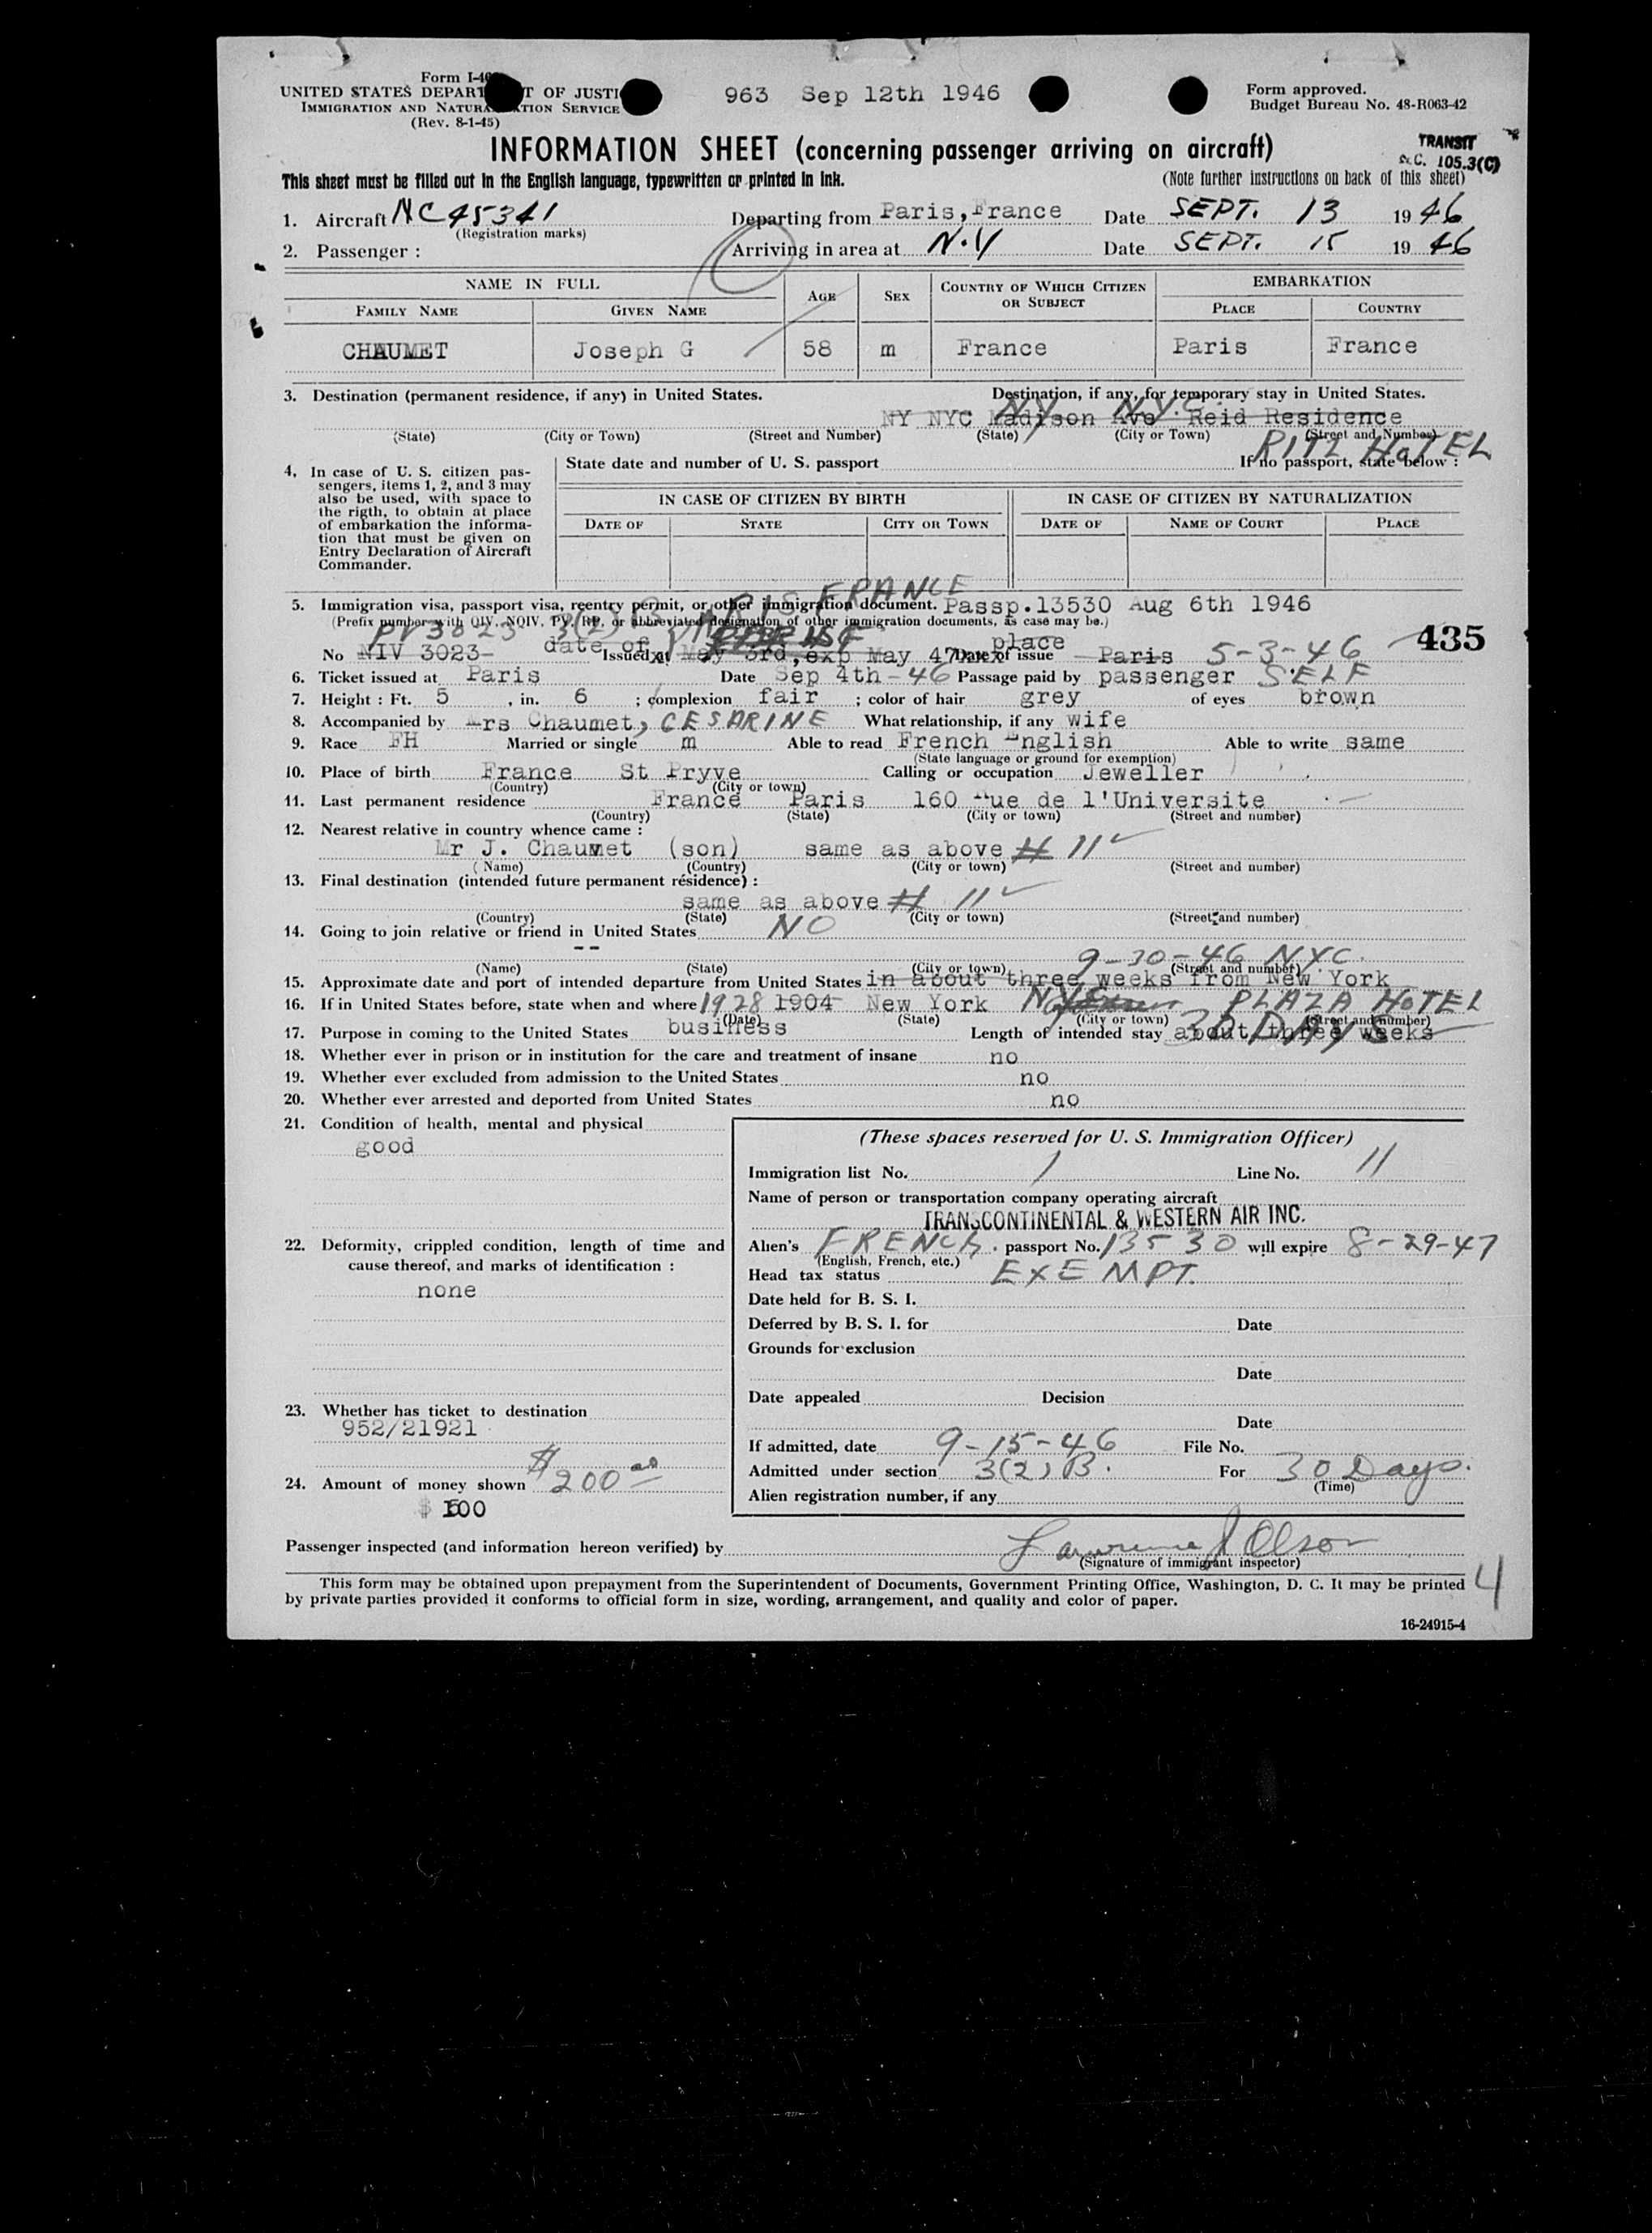 Form I-40
UNITED STATES DEPART T OF JUSTI
IMMIGRATION AND NATURA ATION SERVICE
(Rev. 8-1-45)
963 Sep 12th 1946
Form approved.
Budget Bureau No. 48-R063-42
INFORMATION SHEET (concerning passenger arriving on aircraft)
TRANSIT
105.3(C)
This sheet must be filled out in the English language, typewritten or printed in ink.
(Note further instructions on back of this sheet)
1. Aircraft NC45341 Departing from Paris, France Date SEPT. 13 1946
(Registration marks)
2. Passenger : Arriving in area at N.Y Date SEPT. 15 1946
NAME IN FULL AGE SEX COUNTRY OF WHICH CITIZEN OR SUBJECT EMBARKATION
FAMILY NAME GIVEN NAME PLACE COUNTRY
CHAUMET Joseph G 58 m France Paris France
3. Destination (permanent residence, if any) in United States. Destination, if any, for temporary stay in United States.
NY N.Y.C.
NY NYC Madison Ave Reid Residence
(State) (City or Town) (Street and Number) (State) (City or Town) (Street and Number)
RITZ HOTEL
4. In case of U. S. citizen pas-
sengers, items 1, 2, and 3 may
also be used, with space to
the rigth, to obtain at place
of embarkation the informa-
tion that must be given on
Entry Declaration of Aircraft
Commander.
State date and number of U. S. passport If no passport, state below :
IN CASE OF CITIZEN BY BIRTH IN CASE OF CITIZEN BY NATURALIZATION
DATE OF STATE CITY OR TOWN DATE OF NAME OF COURT PLACE
PARIS FRANCE
5. Immigration visa, passport visa, reentry permit, or other immigration document. Passp.13530 Aug 6th 1946
(Prefix number with QIV, NQIV, PV, RP, or abbreviated designation of other immigration documents, as case may be.)
PV 3023 3(2) B
date of place
No NIV 3023- Issued at May 3rd, exp May 47 Date of issue Paris 5-3-46
435
6. Ticket issued at Paris Date Sep 4th-46 Passage paid by passenger SELF
7. Height : Ft. 5 , in. 6 ; complexion fair ; color of hair grey of eyes brown
8. Accompanied by Mrs Chaumet, CESARINE What relationship, if any wife
9. Race FH Married or single m Able to read French English Able to write same
(State language or ground for exemption)
10. Place of birth France St Pryve Calling or occupation Jeweller
(Country) (City or town)
11. Last permanent residence France Paris 160 rue de l'Universite
(Country) (State) (City or town) (Street and number)
12. Nearest relative in country whence came :
Mr J. Chaumet (son) same as above # 11
(Name) (Country) (City or town) (Street and number)
13. Final destination (intended future permanent résidence) :
same as above # 11
(Country) (State) (City or town) (Street and number)
14. Going to join relative or friend in United States NO
--
9-30-46 NYC.
(Name) (State) (City or town) (Street and number)
15. Approximate date and port of intended departure from United States in about three weeks from New York
16. If in United States before, state when and where 1928 1904 New York NYC PLAZA HOTEL
(Date) (State) (City or town) (Street and number)
17. Purpose in coming to the United States business Length of intended stay about three weeks 30 DAYS
18. Whether ever in prison or in institution for the care and treatment of insane no
19. Whether ever excluded from admission to the United States no
20. Whether ever arrested and deported from United States no
21. Condition of health, mental and physical
good
22. Deformity, crippled condition, length of time and
cause thereof, and marks of identification :
none
23. Whether has ticket to destination
952/21921
24. Amount of money shown $200 00
$ 500
(These spaces reserved for U. S. Immigration Officer)
Immigration list No. 1 Line No. 11
Name of person or transportation company operating aircraft
TRANSCONTINENTAL & WESTERN AIR INC.
Alien's FRENCH. passport No. 13530 will expire 8-29-47
(English, French, etc.)
Head tax status EXEMPT.
Date held for B. S. I.
Deferred by B. S. I. for Date
Grounds for exclusion
Date
Date appealed Decision
Date
If admitted, date 9-15-46 File No.
Admitted under section 3(2) B. For 30 Days.
(Time)
Alien registration number, if any
Passenger inspected (and information hereon verified) by Lawrence J Olson
(Signature of immigrant inspector)
This form may be obtained upon prepayment from the Superintendent of Documents, Government Printing Office, Washington, D. C. It may be printed
by private parties provided it conforms to official form in size, wording, arrangement, and quality and color of paper.
4
16-24915-4